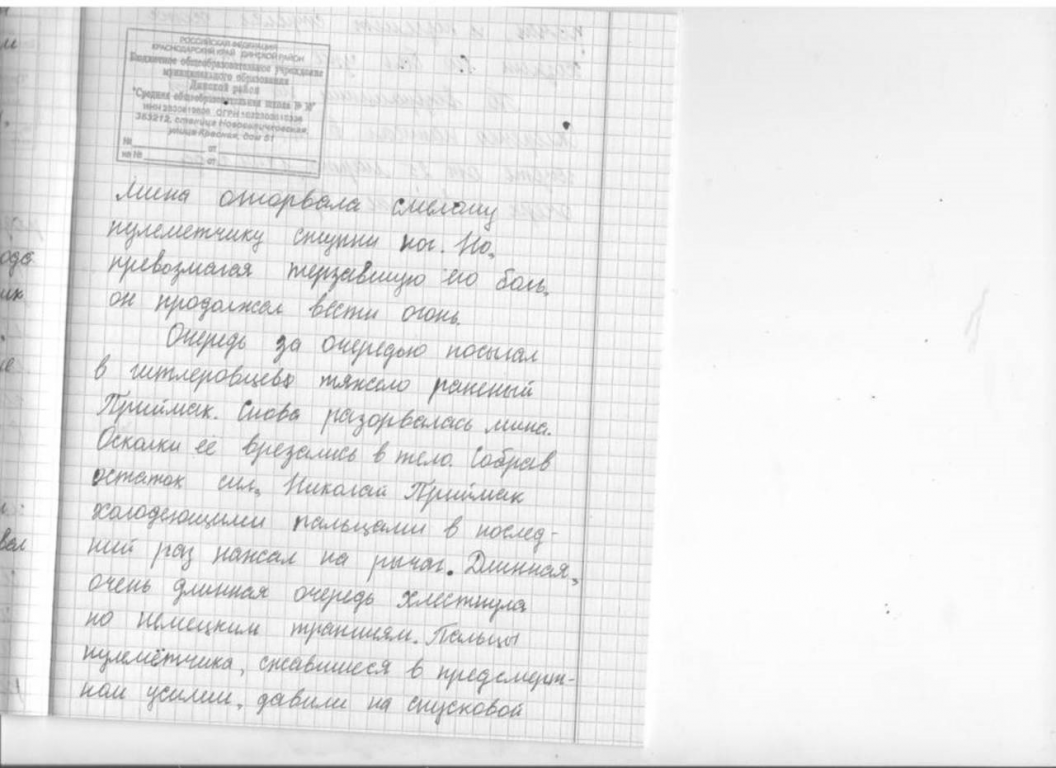 РОССИЙСКАЯ ФЕДЕРАЦИЯ
КРАСНОДАРСКИЙ КРАЙ ДИНСКОЙ РАЙОН
Бюджетное общеобразовательное учреждение
муниципального образования
Динской район
"Средняя общеобразовательная школа №
станица Нововеличковская,
улица Красная, дом 51
№ от
на № от
мина оторвала смелому
пулеметчику ступни ног. Но,
превозмагая терзавшую его боль,
он продолжал вести огонь.
Очередь за очередью посылал
в гитлеровцев тяжело раненый
Приймак. Снова разорвалась мина.
Осколки её врезались в тело. Собрав
остаток сил, Николай Приймак
холодеющими пальцами в послед-
ний раз нажал на рычаг. Длинная,
очень длинная очередь хлестнула
по немецким траншеям. Пальцы
пулемётчика, сжавшиеся в предсмерт-
ном усилии, давили на спусковой